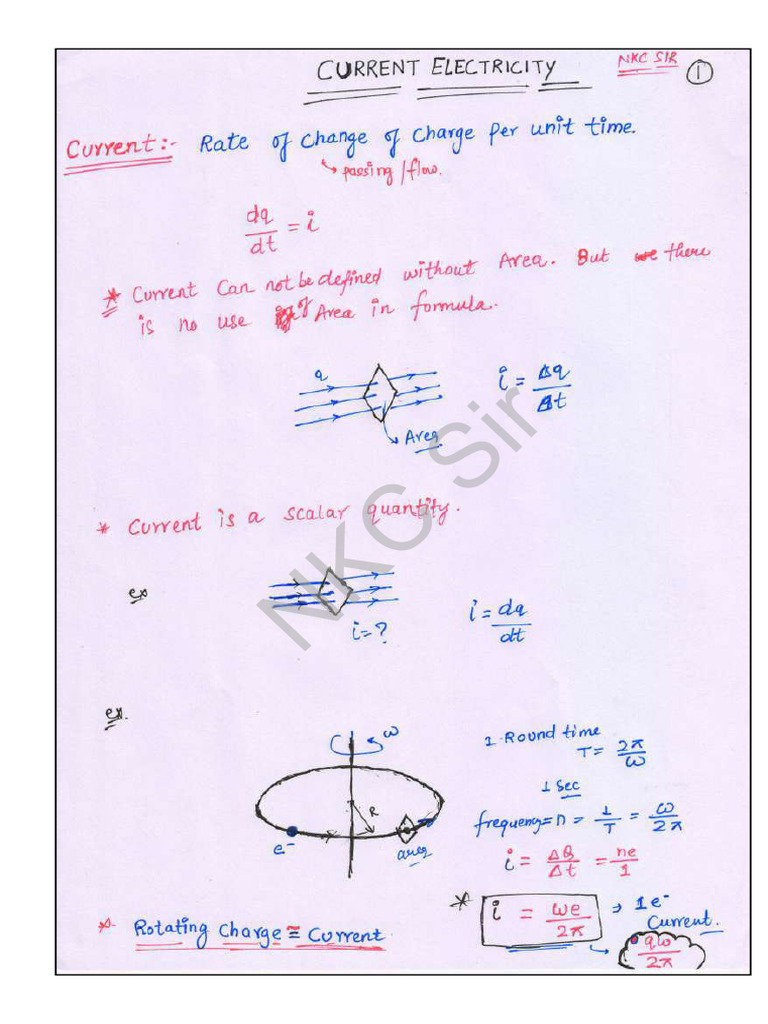 CURRENT ELECTRICITY
NKC SIR
1
Current:- Rate of change of charge per unit time.
↳ passing/flow.
dq/dt = i
* Current Can not be defined without Area. But there
is no use of Area in formula.
q
i = Δq/Δt
Area
* Current is a scalar quantity.
ex
i = dq/dt
i=?
ex.
ω
1 Round time
T = 2π/ω
1 sec
R
frequency = n = 1/T = ω/2π
e-
area
i = ΔQ/Δt = ne/1
* i = ωe/2π → 1e- Current.
* Rotating Charge = Current.
qω/2π
NKC Sir